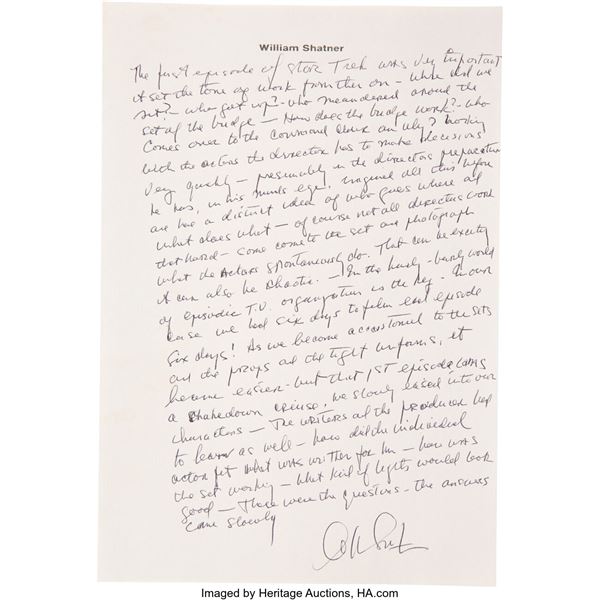 William Shatner
The first episode of Star Trek was very important
it set the tone of work from then on - where did we
sit? - who got up? - who meandered around the
set of the bridge - How does the bridge work? - who
comes over to the command chair an why? working
with the actors the director has to make decisions
very quickly - presumably in the directors preparation
he has, in his minds eye, imagined all this before
and has a distinct idea of who goes where at
what does what - of course not all directors work
that hard - some come to the set and photograph
what the actors spontaneously do. That can be exciting
it can also be chaotic. - In the hurly-burly world
of episodic T.V. organization is the key. In our
case we had six days to film each episode
six days! As we become accustomed to the sets
and the props and the tight uniforms, it
became easier - but that 1ST episode was
a shakedown cruise, we slowly eased into our
characters - The writers and the producer had
to learn as well - how did the individual
actor fit what was written for him - how was
the set working - what kind of lights would look
good - These were the questions - the answers
came slowly
Imaged by Heritage Auctions, HA.com